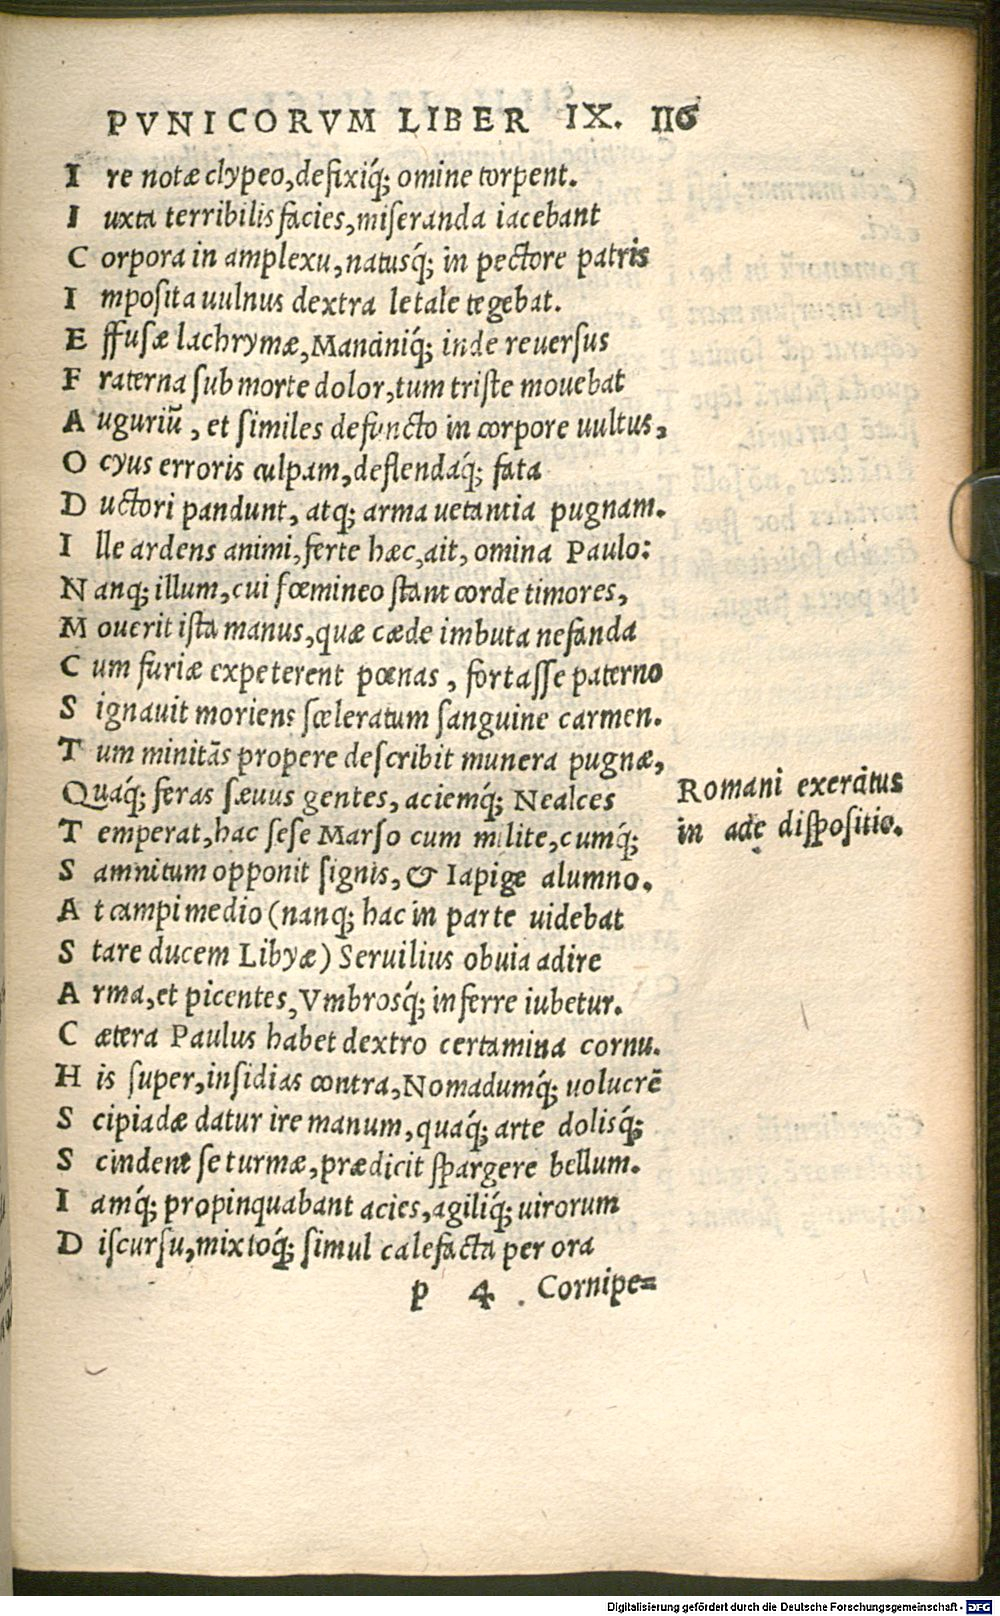 PVNICORVM LIBER IX. 116
I re notæ clypeo, defixiq́; omine torpent.
I uxta terribilis facies, miseranda iacebant
C orpora in amplexu, natusq́; in pectore patris
I mposita uulnus dextra letale tegebat.
E ffusæ lachrymæ, Manciniq́; inde reuersus
F raterna sub morte dolor, tum triste mouebat
A uguriū, et similes defuncto in corpore uultus,
O cyus erroris culpam, deflendaq́; fata
D uctori pandunt, atq; arma uetantia pugnam.
I lle ardens animi, ferte hæc, ait, omina Paulo:
N anq; illum, cui fœmineo stant corde timores,
M ouerit ista manus, quæ cæde imbuta nefanda
C um furiæ expeterent pœnas, fortasse paterno
S ignauit moriens sceleratum sanguine carmen.
T um minitās propere describit munera pugnæ,
Quaq́; feras sæuus gentes, aciemq́; Nealces
T emperat, hac sese Marso cum milite, cumq́;
S amnitum opponit signis, & Iapige alumno.
A t campi medio (nanq; hac in parte uidebat
S tare ducem Libyæ) Seruilius obuia adire
A rma, et picentes, Vmbrosq́; inferre iubetur.
C ætera Paulus habet dextro certamina cornu.
H is super, insidias contra, Nomadumq́; uolucrē
S cipiadæ datur ire manum, quaq́; arte dolisq́;
S cindent se turmæ, prædicit spargere bellum.
I amq́; propinquabant acies, agiliq́; uirorum
D iscursu, mixtoq́; simul calefacta per ora
p 4 Cornipe=
Romani exercitus
in acie dispositio.
Digitalisierung gefördert durch die Deutsche Forschungsgemeinschaft - DFG